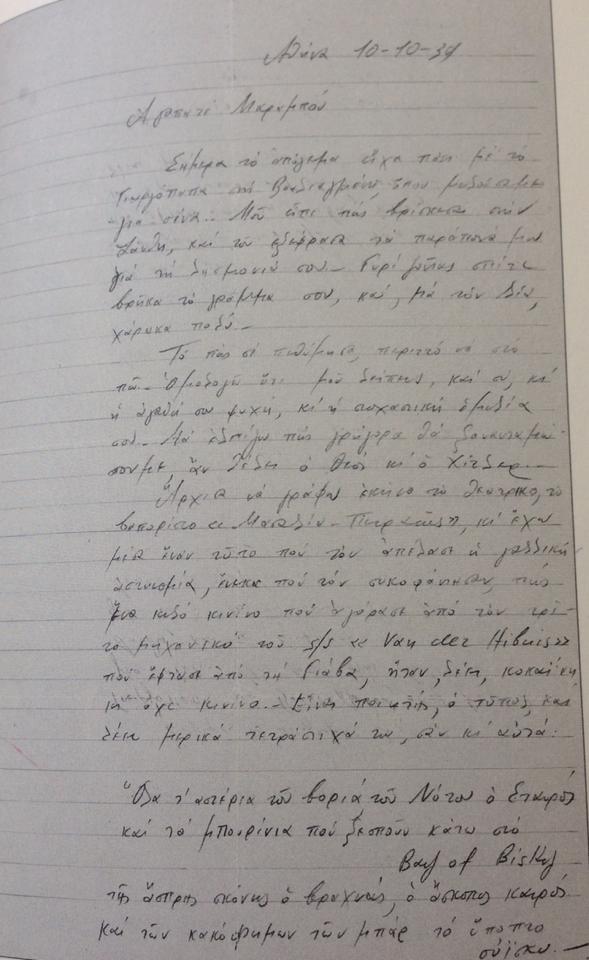 Ἀθήνα 10-10-39
Ἀγαπητέ Μαραμπού
Σήμερα τό ἀπόγεμα εἶχα πάει μέ τό
στή Βουλιαγμένη, ὅπου μιλούσαμε
γιά σένα. Μοῦ εἶπε πώς βρίσκεσαι στήν
Ξάνθη, καί τοῦ ἐξέφρασα τά παράπονά μου
γιά τή λησμονιά σου. Γυρίζοντας σπίτι
βρῆκα τό γράμμα σου, καί, μά τόν Δία,
χάρηκα πολύ.
Τό πώς σέ πεθύμησα, περιττό νά στό
πῶ. Ὁμολογῶ ὅτι μοῦ λείπεις, καί σύ, κι'
ἡ ἀγαθή σου ψυχή, κι' ἡ στοχαστική ὁμιλία
σου. Μά ἐλπίζω πώς γρήγορα θά ξανανταμώ-
σουμε, ἄν θέλει ὁ Θεός κι' ὁ Χίτλερ.
Ἄρχισα νά γράφω ἐκεῖνο τό θεατρικό, τό
βαπορίσιο « Μασσαλία - Πειραιεύς», κι' ἔχω
μέσα ἕναν τύπο πού τόν ἀπέλασε ἡ γαλλική
ἀστυνομία, ἕνεκα πού τόν συκοφάντησαν, πώς
ἕνα κιλό κινίνο πού ἀγόρασε ἀπό τόν τρί-
το μηχανικό τοῦ s/s « Van der
πού ἔφτασε ἀπό τή Γιάβα, ἦταν, λέει, κοκαΐνη
κι' ὄχι κινίνο. Εἶναι ποιητής, ὁ τύπος, καί
λέει μερικά τετράστιχά του, σάν κι' αὐτά:
"Ὅλα τ' ἀστέρια τοῦ βοριᾶ, τοῦ Νότου ὁ Σταυρός
καί τά μπουρίνια πού ξεσποῦν κάτω στό
Bay of Bisky
τῆς ἄσπρης σκόνης ὁ βραχνάς, ὁ ἄσκοπος καιρός
καί τῶν κακόφημων τῶν μπάρ τό ὕποπτο
οὐΐσκυ. —